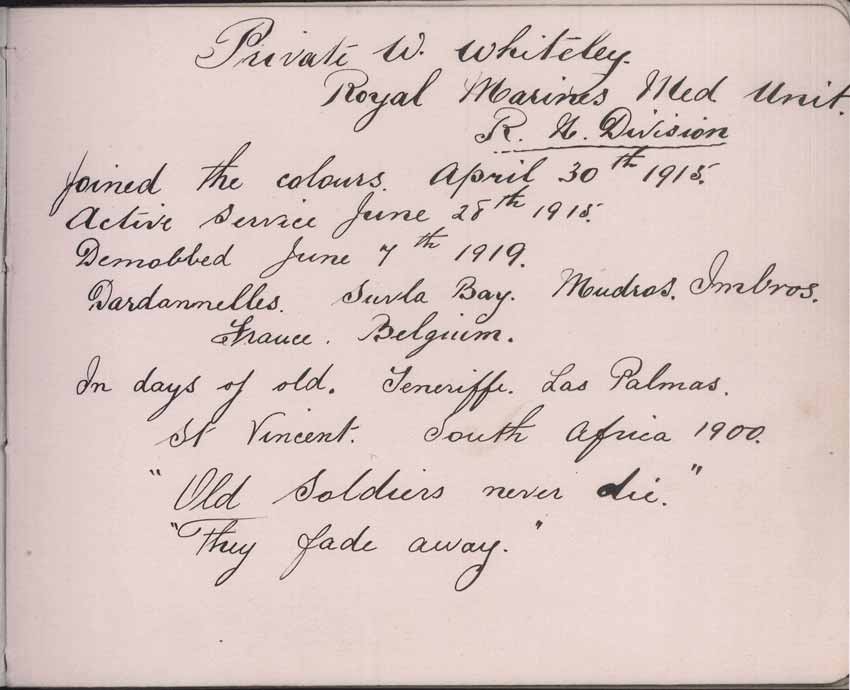 Private W. Whiteley.
Royal Marines Med Unit.
R. N. Division
Joined the colours. April 30th 1915.
Active Service June 28th 1915.
Demobbed June 7th 1919.
Dardannelles. Suvla Bay. Mudros. Imbros.
France. Belgium.
In days of old. Teneriffe. Las Palmas.
St Vincent. South Africa 1900.
"Old Soldiers never die."
"They fade away."